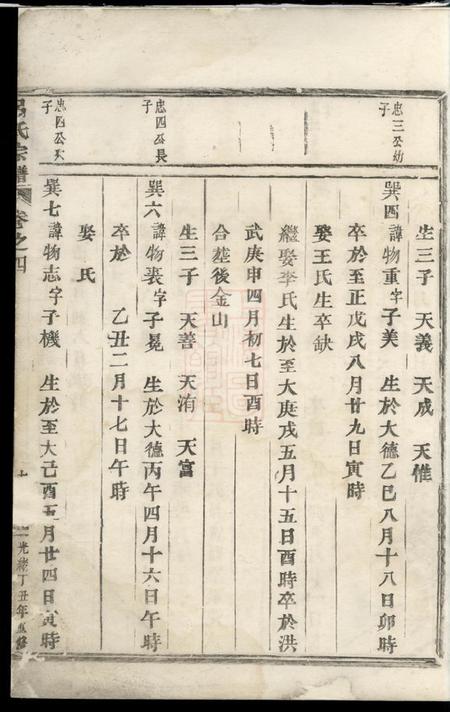 生三子 天義 天成 天惟
忠三公幼子
巽四 諱物重字子美 生於大德乙巳八月十八日卯時
卒於至正戊戌八月廿九日寅時
娶王氏生卒缺
繼娶李氏生於至大庚戌五月十五日酉時卒於洪
武庚申四月初七日酉時
合塟後金山
生三子 天善 天洧 天富
忠四公長子
巽六 諱物裴字子冕 生於大德丙午四月十六日午時
卒於 乙丑二月十七日午時
娶 氏
忠四公次子
巽七 諱物志字子機 生於至大己酉五月廿四日寅時
呂氏宗譜 卷之四
光緒丁丑年重修